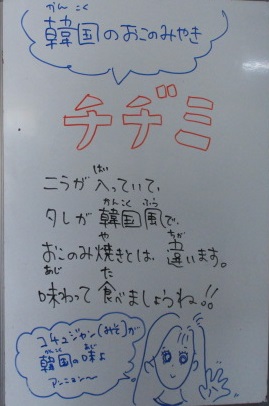 かんこく
韓国のおこのみやき
チヂミ
ニラが入っていて、
かんこくふう
タレが韓国風で、
や ちが
おこのみ焼きとは、違います。
あじ た
味わって食べましょうね!!
コチュジャン(みそ)が
かんこく あじ
韓国の味よ
アンニョン〜